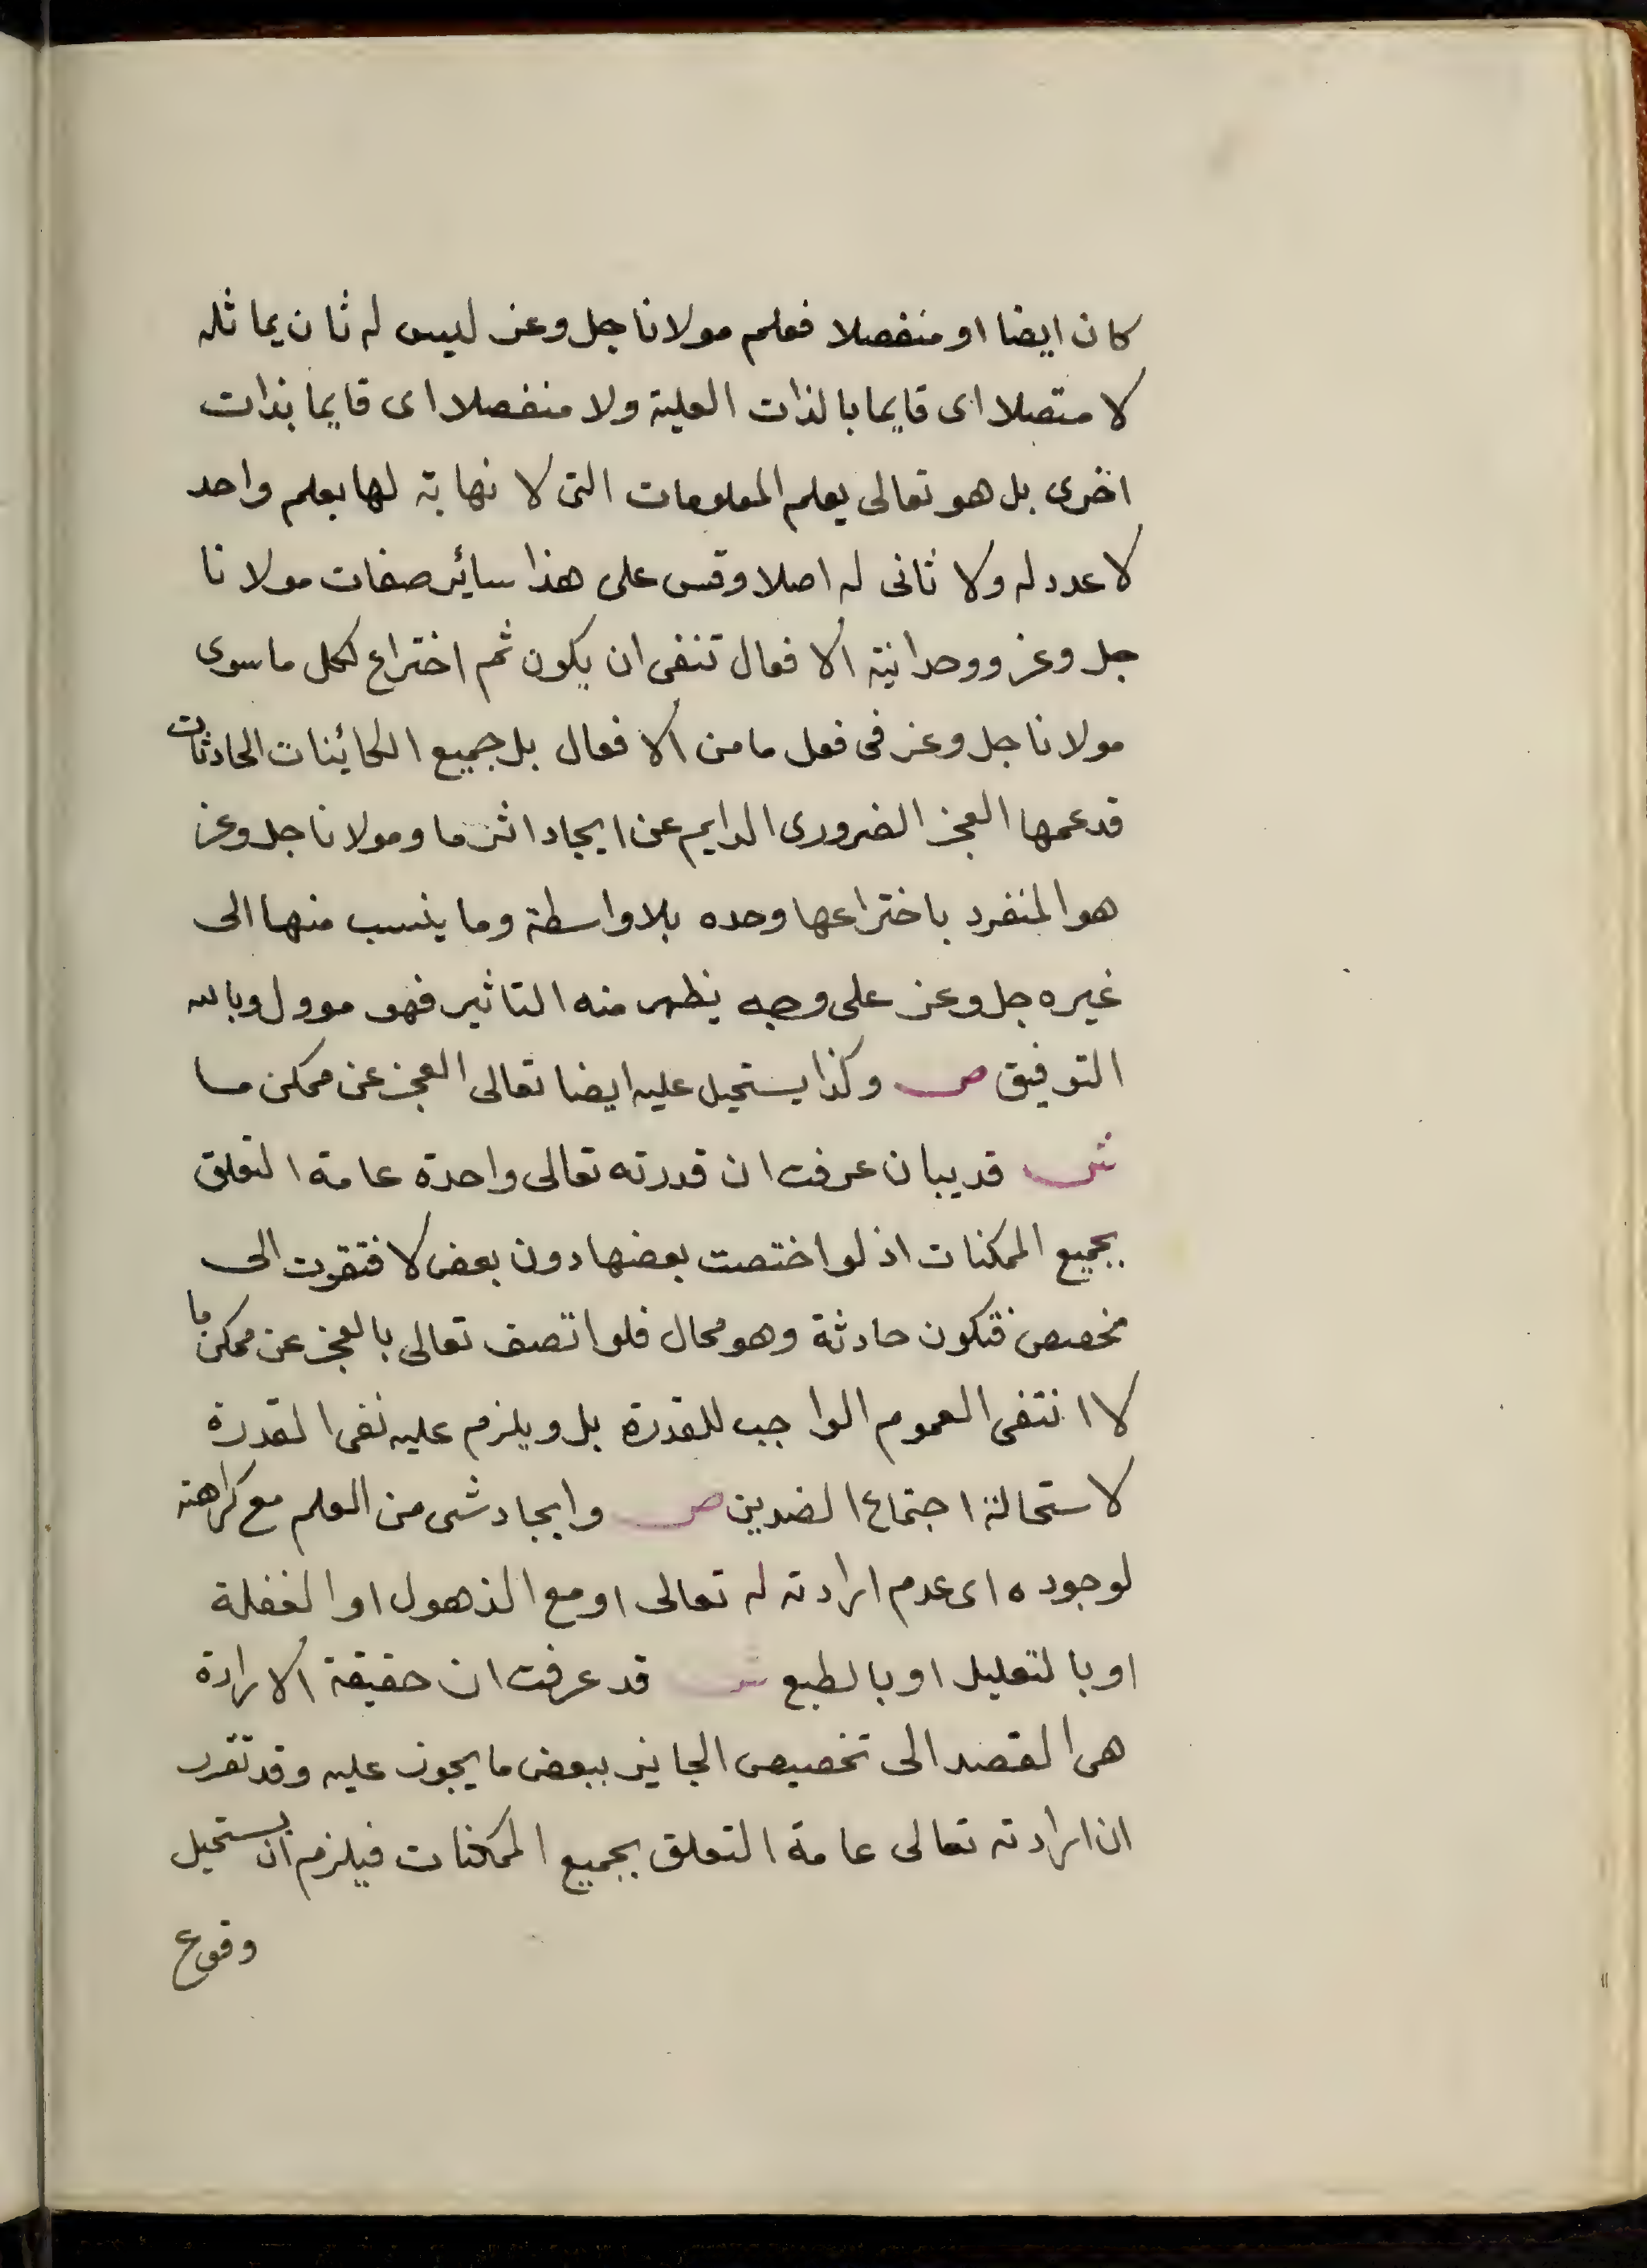 كان ايضا او منفصلا فعلم مولانا جل وعز ليس له ثان يماثله
لا متصلا اى قايما بالذات العلية ولا منفصلا اى قايما بذات
اخرى بل هو تعالى يعلم المعلومات التى لا نهاية لها بعلم واحد
لا عدد له ولا ثانى له اصلا وقس على هذا سائر صفات مولانا
جل وعز ووحدانية الافعال تنفى ان يكون ثم اختراع لكل ما سوى
مولانا جل وعز فى فعل ما من الافعال بل جميع الكائنات الحادثات
قد عمها العجز الضرورى الدايم عن ايجاد اثر ما ومولانا جل وعز
هو المنفرد باختراعها وحده بلا واسطة وما ينسب منها الى
غيره جل وعز على وجه يظهر منه التاثير فهو موول وبالله
التوفيق ص وكذا يستحيل عليه ايضا تعالى العجز عن ممكن ما
ش قد يبان عرفت ان قدرته تعالى واحدة عامة التعلق
بجميع الممكنات اذ لو اختصت بعضها دون بعض لافتقرت الى
مخصص فتكون حادثة وهو محال فلو اتصف تعالى بالعجز عن ممكن ما
لا انتفى العموم الواجب للقدرة بل ويلزم عليه نفى القدرة
لاستحالة اجتماع الضدين ص وايجاد شى من العلم مع كراهته
لوجوده اى عدم ارادته له تعالى او مع الذهول او الغفلة
او بالتعليل او بالطبع ش قد عرفت ان حقيقة الارادة
هى القصد الى تخصيص الجايز ببعض ما يجوز عليه وقد تقرر
ان ارادته تعالى عامة التعلق بجميع الممكنات فيلزم ان يستحيل
وقوع